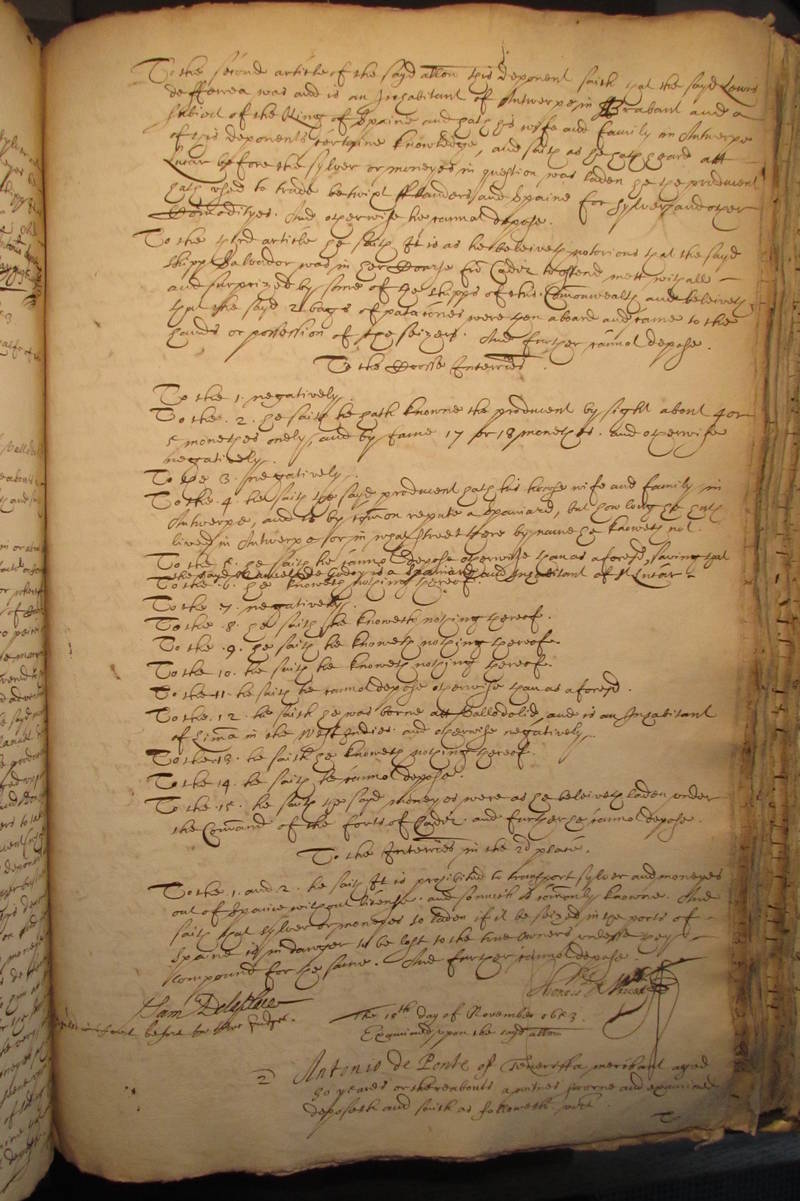 To the second article of the sayd allon this deponent saith that the sayd Lewis
de fferrea was and is an Inhabitant of Antwerpe in Brabant and a
subiect of the King of Spaine and hath his wife and family in Antwerpe
of this deponents certaine knowledge, and saith as he hath heard att
Lucar before the sylver or moneyes in question was laden he the producent
hath used to trade betwixt fflanders and Spaine for sylver and other
Comodityes. And otherwise hee cannot depose.
To the third article he saith It is as hee beleiveth notorious that the sayd
shipp Salvador was in her Course from Cadiz to Ostend mett withall
and surprized by some of the shipps of this Comonwealth and beleiveth
that the sayd 2 bags of patacones were then aboard and came to the
hands or possession of the seizers. And further cannot depose.
To the Crosse Interries.
To the 1. negatively.
To the 2. he saith he hath knowne the producent by sight about 4 or
5 monethes onely, and by fame 17 or 18 monethes. and otherwise
negatively.
To the 3. negatively.
To the 4. he saith the sayd producent hath his house wife and family in
Antwerpe, and is by comon repute a Spaniard, but how long he hath
lived in Antwerpe or in what streete there by name he knoweth not.
To the 5. he saith he cannot depose otherwise than as aforesd, saving that
the sayd de Godoy is a Spaniard and Inhabitant of St Lucar
To the .6. he knoweth nothing thereof.
To the 7. negatively.
To the .8. he saith he knoweth nothing thereof.
To the .9. he saith he knoweth nothing thereof.
To the 10. he saith he knoweth nothing thereof.
To the 11. he saith he cannot depose otherwise than as aforesd.
To the .12. he saith he was borne att Valledolid, and is an Inhabitant
of Lima in the West Indies. and otherwise negatively.
To the 13. he saith he knoweth nothing thereof.
To the 14. he saith he cannot depose.
To the 15. he saith the sayd moneyes were as he beleiveth laden under
the Comand of the forts of Cadiz. and further he cannot depose.
To the Interries in the 2d place.
To the 1. and 2. he saith It is prohibited to transport sylver and moneyes
out of Spaine without license. and so much is comonly knowne. And
saith that sylver or moneyes so laden if it be seized in the ports of
Spaine is in danger to be lost to the true owners unlesse they
compound for the same. And further cannot depose.
before the Judge.
The 10th day of November 1653.
Examined upon the sayd allon
2 Antonio de Ponte of Teneriffa merchant aged
30 yeares or thereabouts a witnes sworne and examined
deposeth and saith as followeth vizt
To